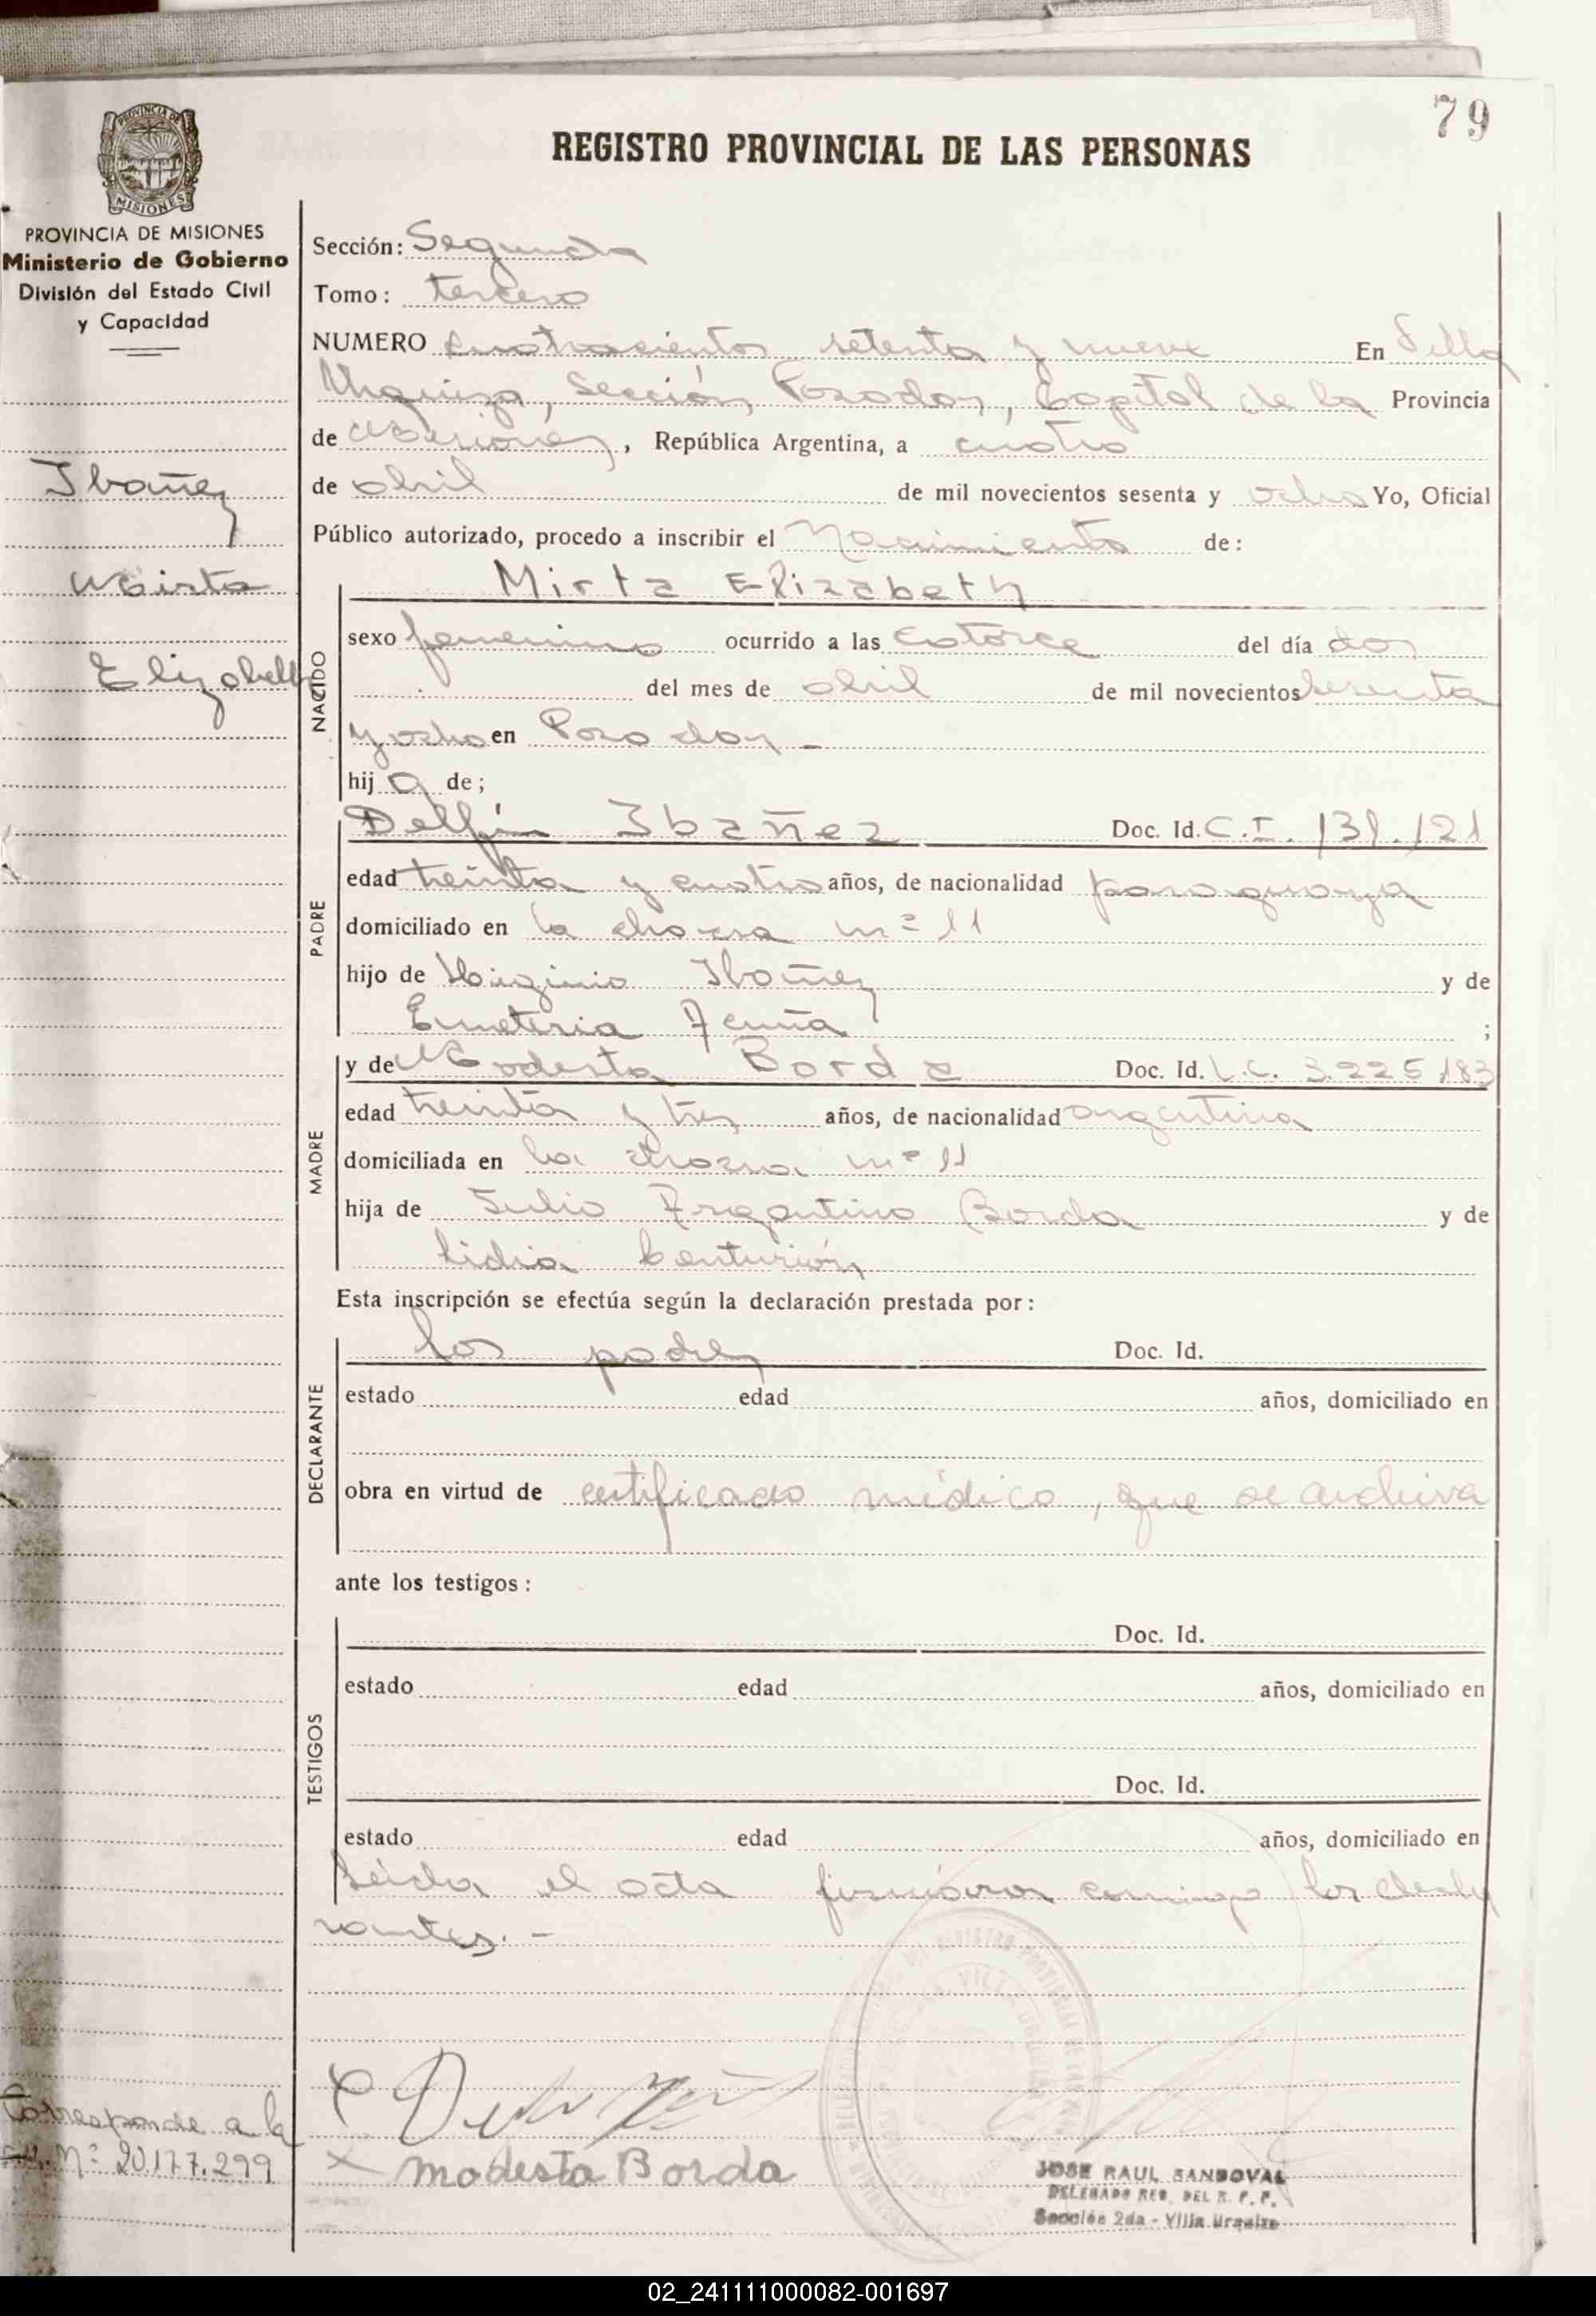 79
REGISTRO PROVINCIAL DE LAS PERSONAS
PROVINCIA DE MISIONES
PROVINCIA DE MISIONES
Ministerio de Gobierno
División del Estado Civil
y Capacidad
Ibañez
Mirta
Elizabeth
Sección: Segunda
Tomo: tercero
NUMERO cuatrocientos setenta y nueve En Villa
Urquiza, Sección Posadas, Capital de la Provincia
de Misiones, República Argentina, a cuatro
de abril de mil novecientos sesenta y ocho Yo, Oficial
Público autorizado, procedo a inscribir el Nacimiento de:
NACIDO
Mirta Elizabeth
sexo femenino ocurrido a las catorce del día dos
del mes de abril de mil novecientos sesenta
y ocho en Posadas –
hija de;
PADRE
Delfín Ibañez Doc. Id. C.I. 131.121
edad treinta y cuatro años, de nacionalidad paraguaya
domiciliado en la chacra nº 11
hijo de Higinio Ibañez y de
Emeteria Acuña ;
MADRE
y de Modesta Borda Doc. Id. L.C. 3.225.183
edad treinta y tres años, de nacionalidad argentina
domiciliada en la chacra nº 11
hija de Julio Argentino Borda y de
Lidia Centurión
Esta inscripción se efectúa según la declaración prestada por:
DECLARANTE
los padres Doc. Id.
estado edad años, domiciliado en
obra en virtud de certificado médico, que se archiva
ante los testigos:
TESTIGOS
Doc. Id.
estado edad años, domiciliado en
Doc. Id.
estado edad años, domiciliado en
Leída el acta firmáron conmigo los decla
rantes. –
Corresponde a la
Nº 20.177.299
X
X Modesta Borda
JOSE RAUL SANDOVAL
DELEGADO REG. DEL R. P. P.
Sección 2da - Villa Urquiza
02_241111000082-001697